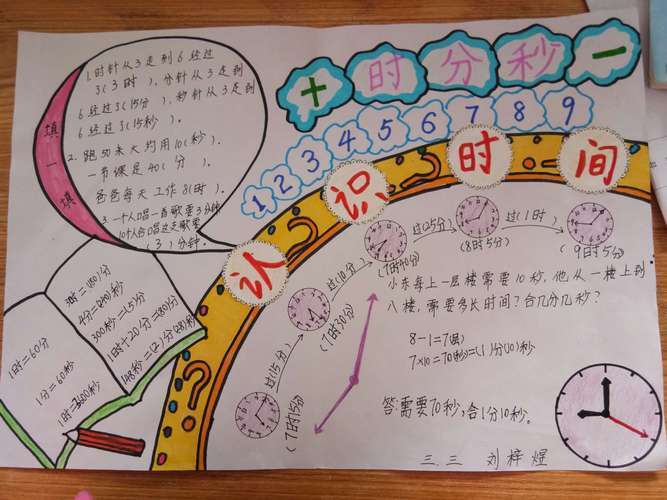 + 时分秒 -
1 2 3 4 5 6 7 8 9
认识时间
填一填
1.时针从3走到6经过
3(3时),分针从3走到
6经过了(15分),秒针从3走到
6经过了(15秒)。
2.跑50米大约用10(秒)。
一节课是40(分)。
爸爸每天工作8(时)。
3.一个人唱一首歌要3分钟
10个人合唱这支歌要
(3)分钟。
1时=60分
1分=60秒
1时=3600秒
3时=(180)分
4分=240秒
300秒=(5)分
1时+20分=(80)分
148秒=(2)分(28)秒
(7时15分)
过(15分)
(7时30分)
过(10分)
(7时40分)
过(25分)
(8时5分)
过(1时)
(9时5分)
小东每上一层楼需要10秒,他从一楼上到
八楼,需要多长时间?合几分几秒?
8-1=7(层)
7×10=70(秒)=(1)分(10)秒
答:需要70秒,合1分10秒。
三.三 刘梓煜